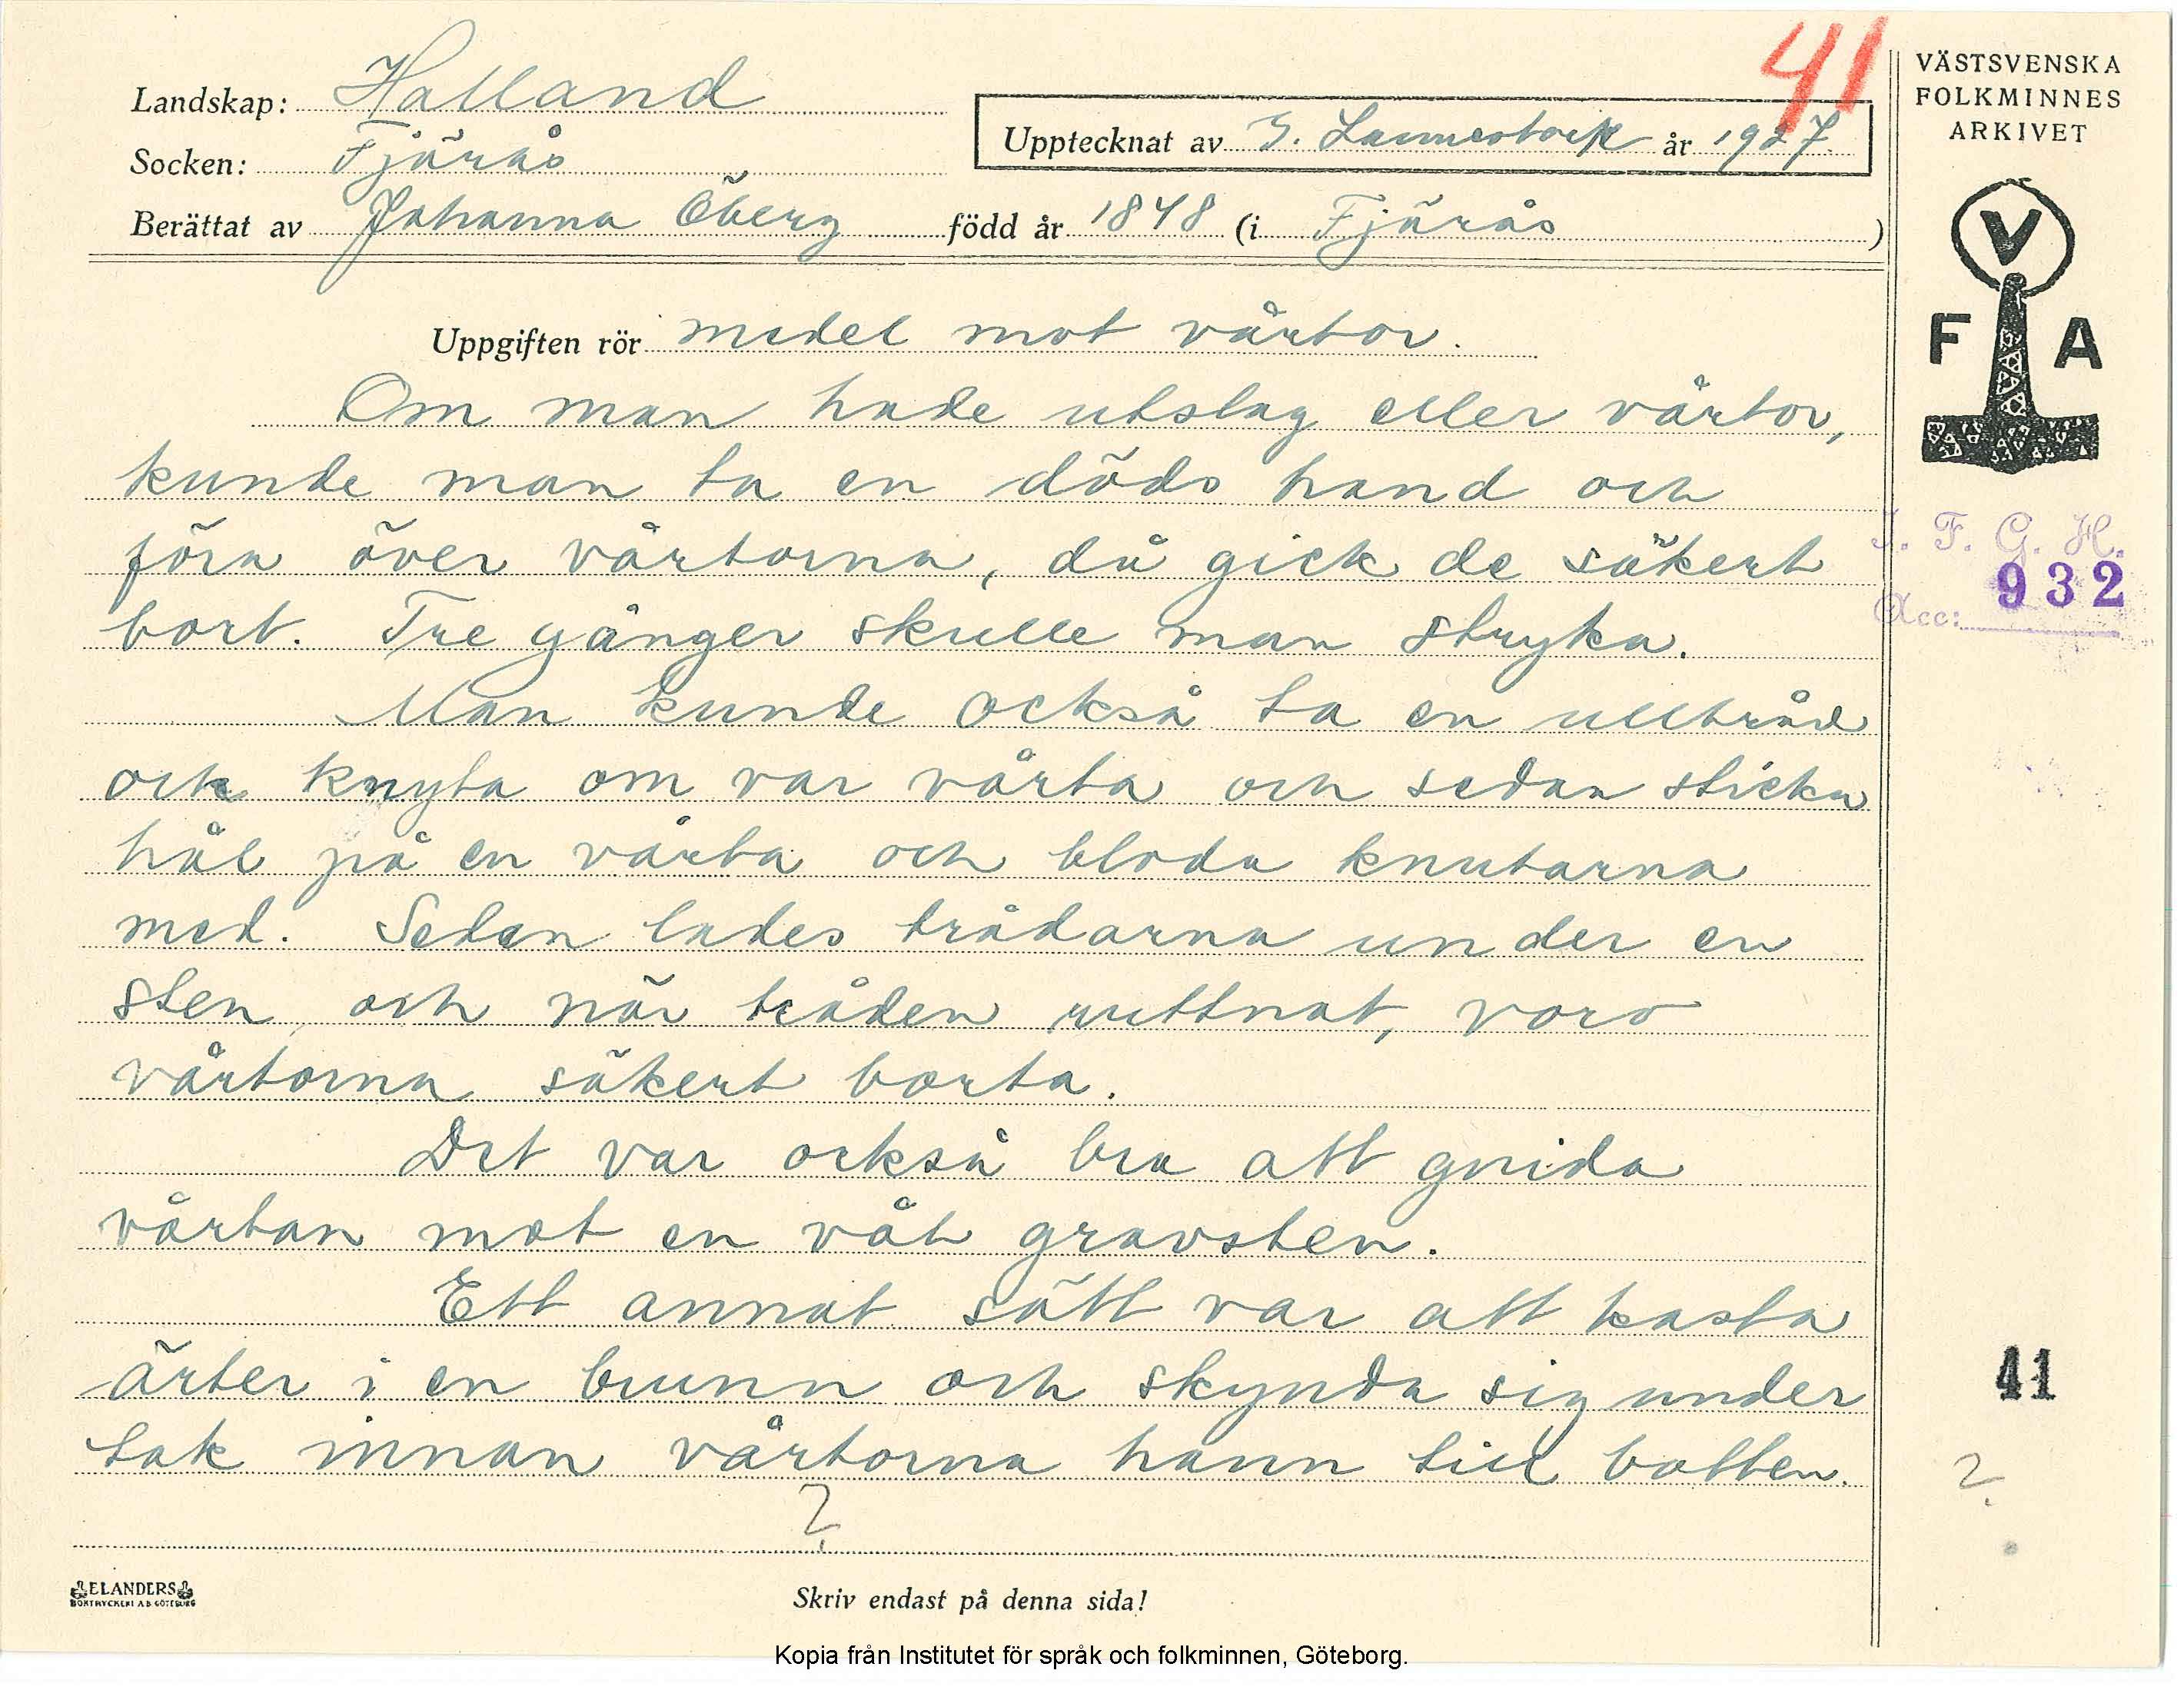 41
VÄSTSVENSKA
FOLKMINNES
ARKIVET
Landskap: Halland
Upptecknat av G. år 1927.
Socken: Fjärås
Berättat av Johanna Öberg född år 1848 (i Fjärås)
V
F A
Uppgiften rör medel mot vårtor.
Om man hade utslag eller vårtor,
kunde man ta en döds hand och
föra över vårtorna, då gick de säkert
bort. Tre gånger skulle man stryka.
I. F. G. H.
Acc: 932
Man kunde också ta en ulltråd
och knyta om var vårta och sedan sticka
hål på en vårta och bloda knutarna
med. Sedan lades trådarna under en
sten, och när tråden ruttnat, voro
vårtorna säkert borta.
Det var också bra att gnida
vårtan mot en våt gravsten.
Ett annat sätt var att kasta
ärter i en brunn och skynda sig under
tak innan vårtorna hann till botten.
?
41
?
ELANDERS
BOKTRYCKERI A.B. GÖTEBORG
Skriv endast på denna sida!
Kopia från Institutet för språk och folkminnen, Göteborg.